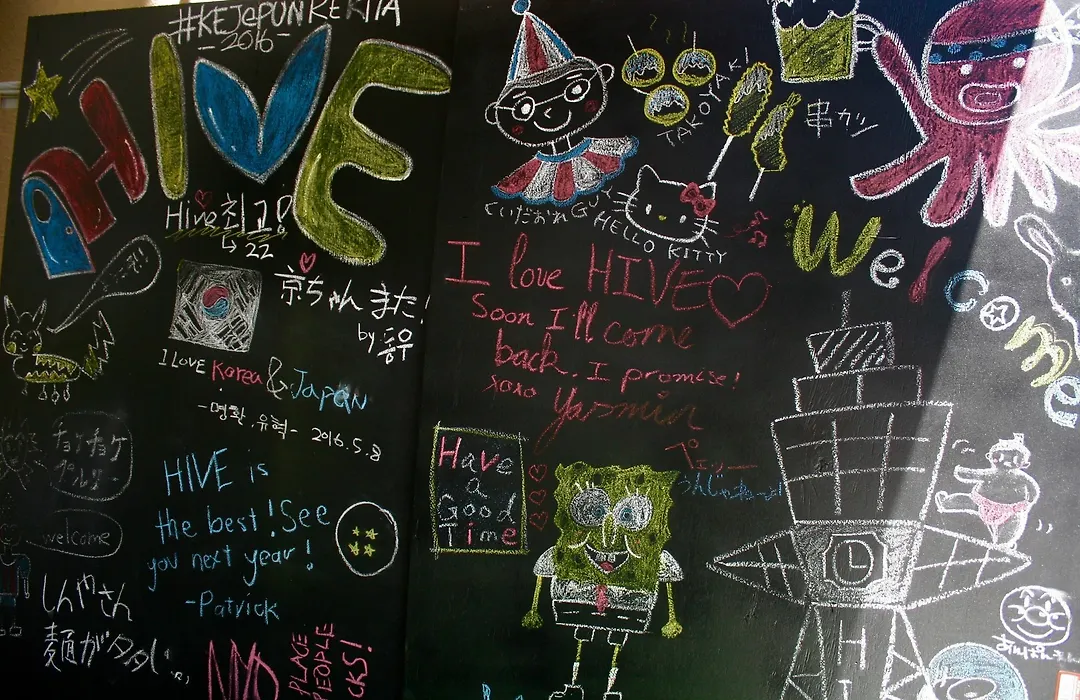 #KEJEPUNKEKITA
- 2016 -
HIVE
Hive 최고!
↳ 22
京ちゃん また!
by
I LOVE Korea & Japan
- 명환, 유혁 - 2016.5.8
HIVE is
the best! See
you next year!
- Patrick
welcome
しんやさん
麺がタタ
PLACE
PEOPLE
CKS!
TAKOYAKI
串カツ
くいだおれ
HELLO KITTY
I love HIVE
Soon I'll come
back. I promise!
xoxo Yasmin
Have
a
Good
Time
ペェッー
Welcome
HI